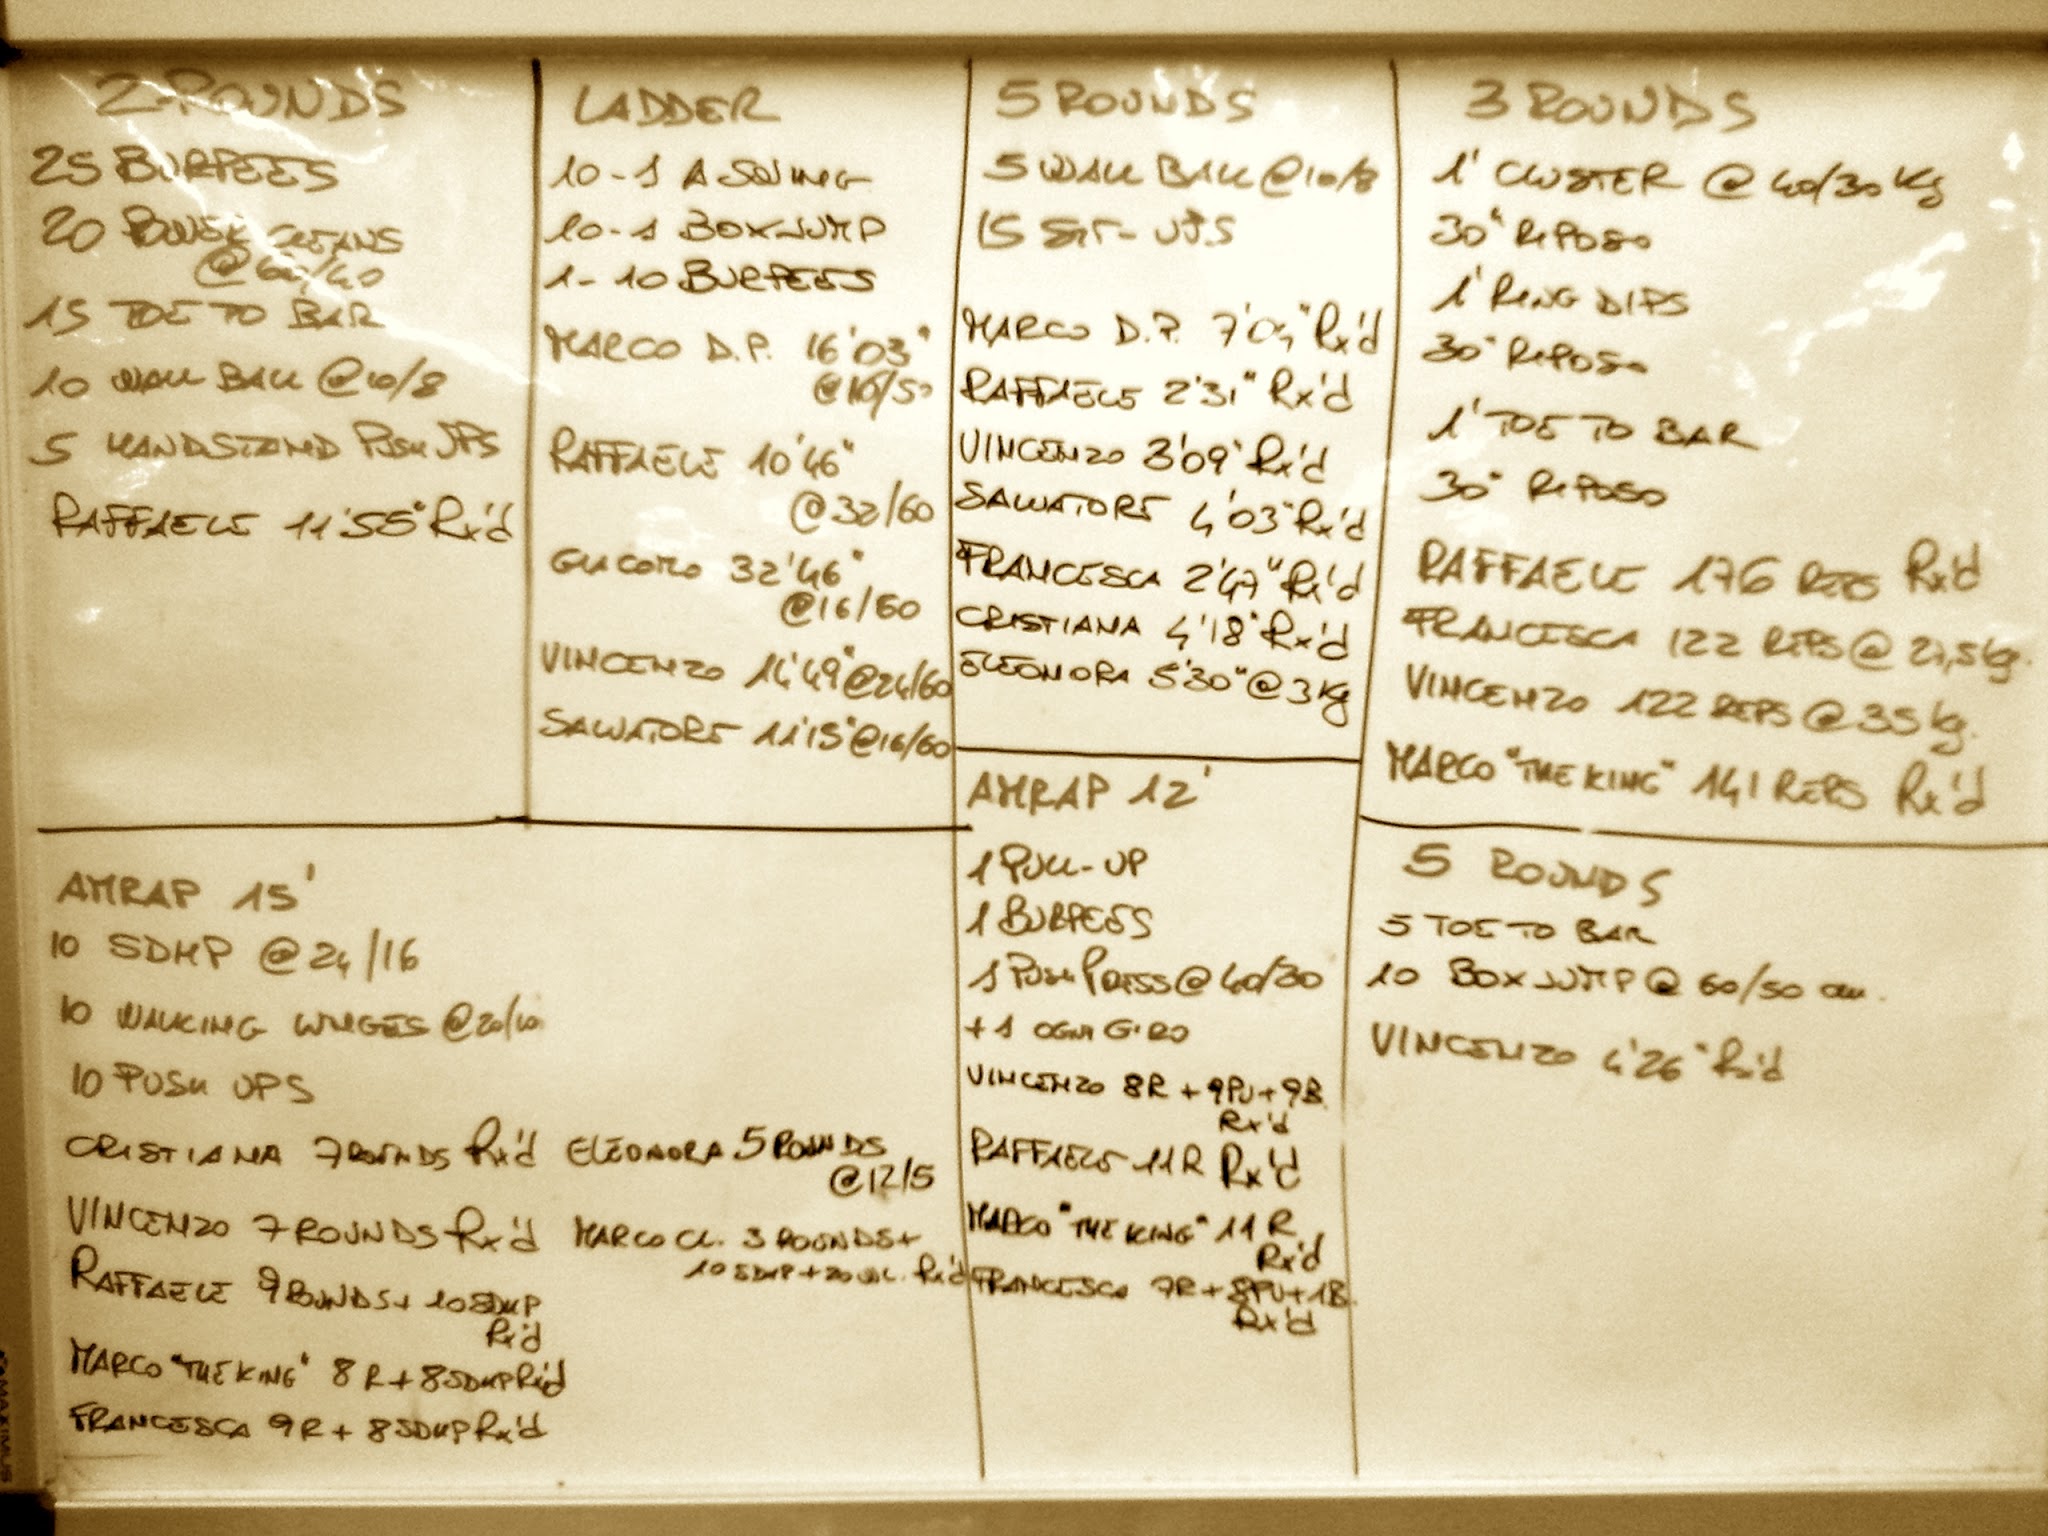 2 ROUNDS
25 BURPEES
20 POWER CLEANS
@60/40
15 TOE TO BAR
10 WALL BALL @10/8
5 HANDSTAND PUSH UPS
RAFFAELE 11'55" Rx'd
LADDER
10-1 A SWING
10-1 BOX JUMP
1-10 BURPEES
MARCO D.P. 16'03"
RAFFAELE 10'46"
@32/60
GIACOMO 32'46"
@16/60
VINCENZO 14'49" @24/60
SALVATORE 11'15" @16/60
5 ROUNDS
5 WALL BALL @10/8
15 SIT-UPS
MARCO D.P. 7'04" Rx'd
RAFFAELE 2'31" Rx'd
VINCENZO 3'09" Rx'd
SALVATORE 4'03" Rx'd
FRANCESCA 2'47" Rx'd
CRISTIANA 4'18" Rx'd
ELEONORA 5'30" @ 3 Kg
3 ROUNDS
1' CLUSTER @ 40/30 Kg
30" RIPOSO
1' RING DIPS
30" RIPOSO
1' TOE TO BAR
30" RIPOSO
RAFFAELE 176 REPS Rx'd
FRANCESCA 122 REPS @
VINCENZO 122 REPS @ 35 kg.
MARCO "THE KING" 141 REPS Rx'd
AMRAP 15'
10 SDHP @ 24/16
10 WALKING LUNGES @20/10
10 PUSH UPS
CRISTIANA 7 ROUNDS Rx'd
VINCENZO 7 ROUNDS Rx'd
RAFFAELE 9 ROUNDS + 10 SDHP
Rx'd
MARCO "THE KING" 8 R + 8 SDHP Rx'd
FRANCESCA 9 R + 8 SDHP Rx'd
ELEONORA 5 ROUNDS
@12/5
MARCO CL. 3 ROUNDS +
10 SDHP + 20 Rx'd
AMRAP 12'
1 PULL-UP
1 BURPEES
1 PUSH PRESS @ 40/30
+ 1 OGNI GIRO
VINCENZO 8R + 9PU + 9B
Rx'd
RAFFAELE 11 R Rx'd
MARCO "THE KING" 11 R
Rx'd
FRANCESCA 7R + 8PU + 1B.
Rx'd
5 ROUNDS
5 TOE TO BAR
10 BOX JUMP @ 60/50 cm.
VINCENZO 4'26" Rx'd